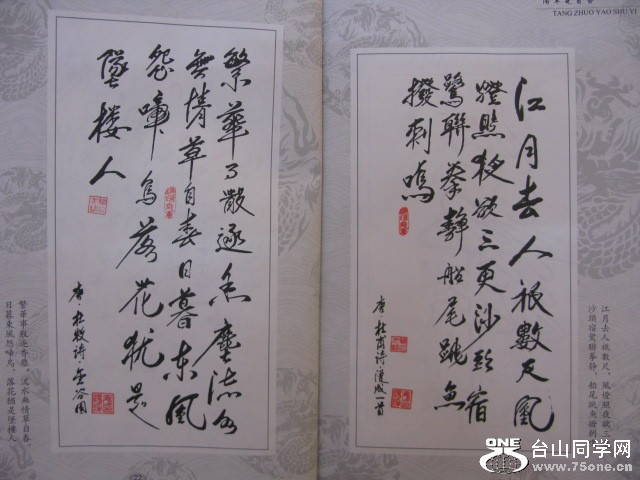 TANG ZHUO YAO SHU YI
江月去人祗數尺風
燈照夜欲三更沙頭宿
鷺聯拳静船尾跳魚
撥刺鳴
唐·杜甫詩·漫成一首
江月去人祗數尺，風燈照夜欲三
沙頭宿鷺聯拳静，船尾跳魚撥刺
繁華事散逐香塵流水
無情草自春日暮東風
怨啼鳥落花猶是
墜楼人
唐·杜牧詩·金谷園
繁華事散逐香塵，流水無情草自春
日暮東風怨啼鳥，落花猶是墜樓人
ONE 台山同学网
www.75one.cn